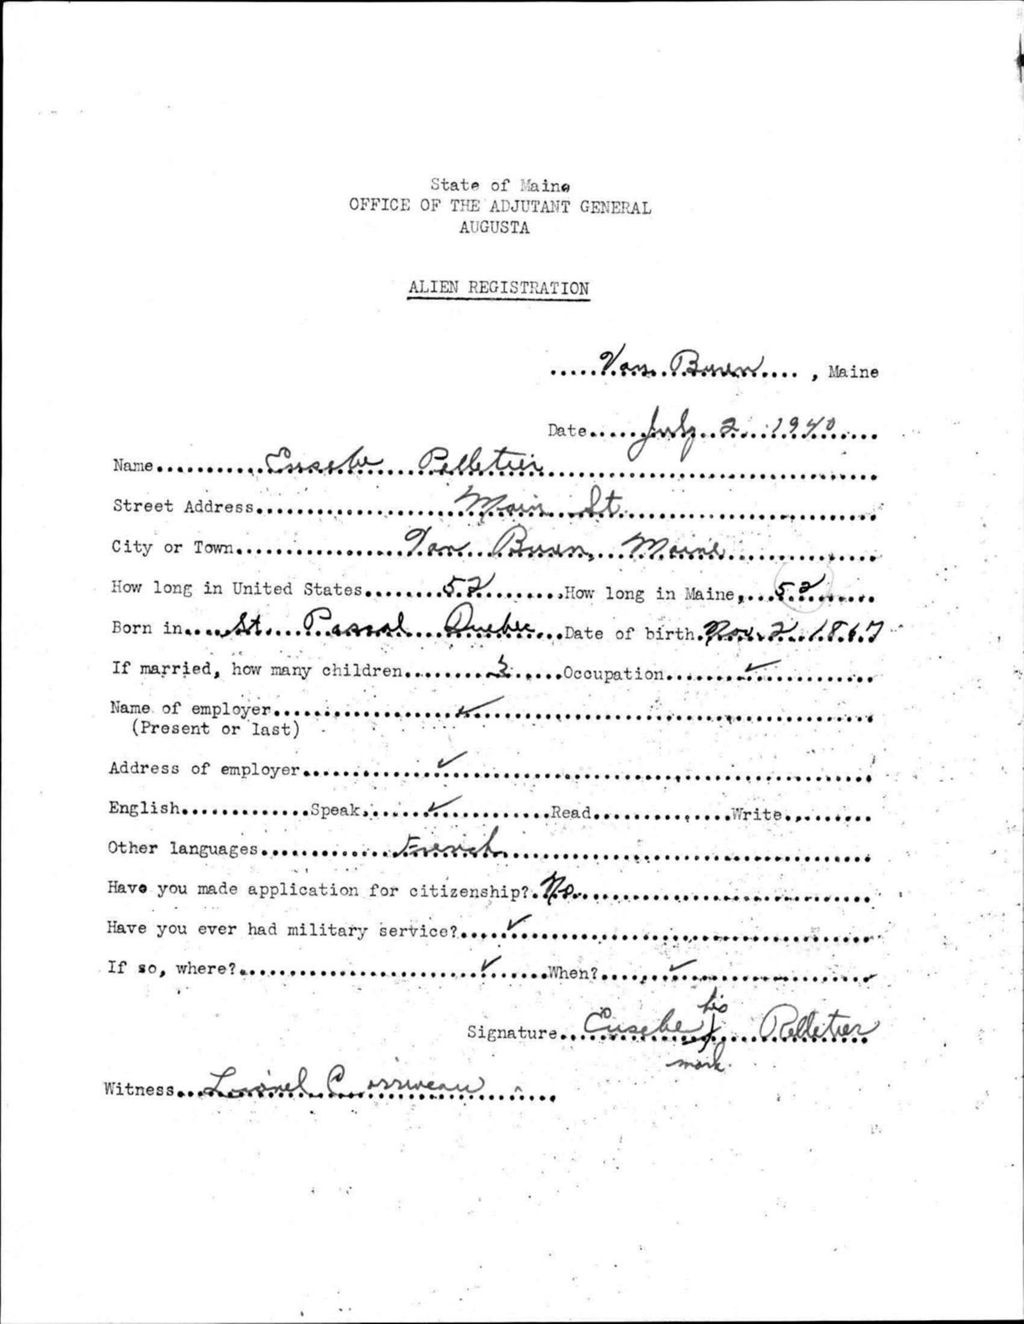 State of Maine
OFFICE OF THE ADJUTANT GENERAL
AUGUSTA
ALIEN REGISTRATION
Van Buren, Maine
Date July 2 1940
Name Eusebe Pelletier
Street Address Main St.
City or Town Van Buren, Maine
How long in United States 52 How long in Maine 52
Born in St. Pascal Quebec Date of birth Nov. 2 1867
If married, how many children 3 Occupation ✓
Name of employer ✓
(Present or last)
Address of employer ✓
English Speak ✓ Read Write
Other languages French
Have you made application for citizenship? No
Have you ever had military service? ✓
If so, where? ✓ When? ✓
his
Signature Eusebe X Pelletier
mark.
Witness Lionel Corriveau